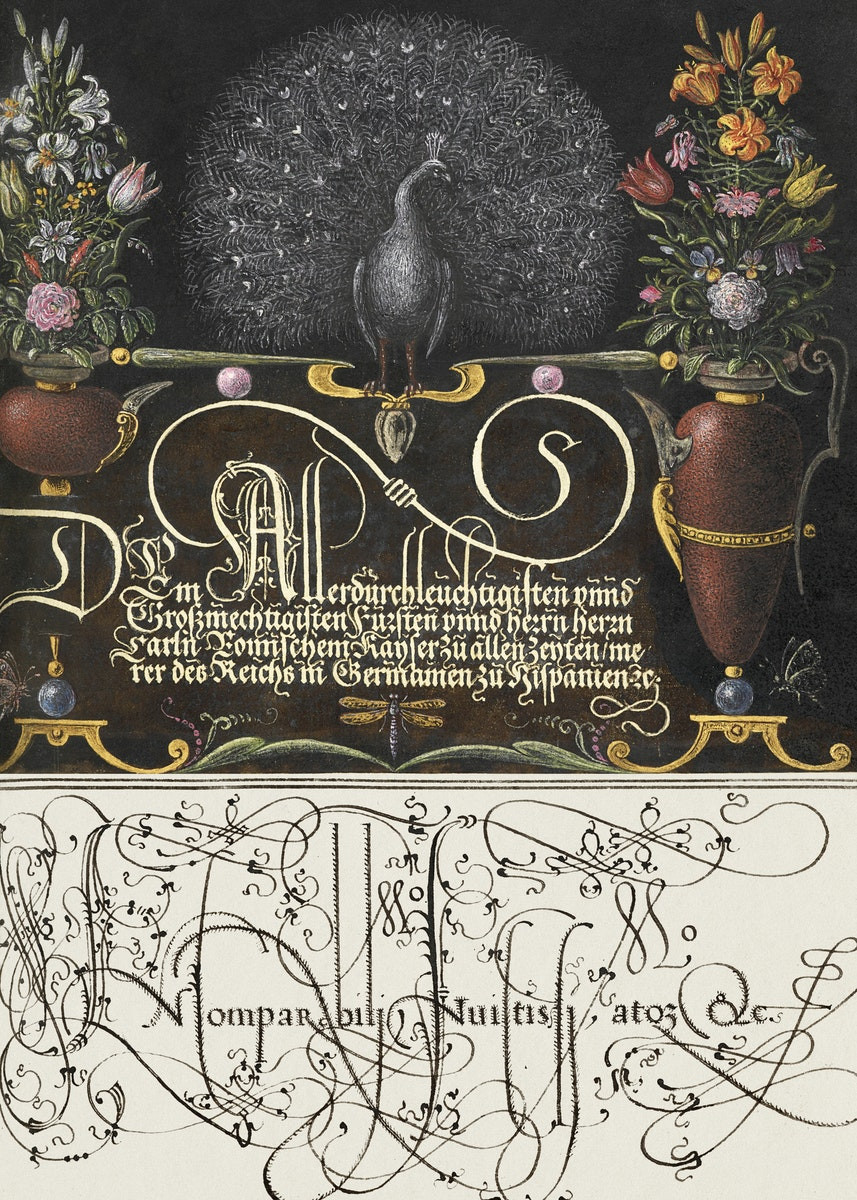 S
Dem Allerdurchleuchtigisten vnnd
Großmechtigisten Fürsten vnnd herrn herrn
Carln Romischem Kayser zu allen Zeyten / me
rer des Reichs in Germanien zu Hispanien ꝛc.
Mo
Mo
omparabili Nui tissi atoz &c.